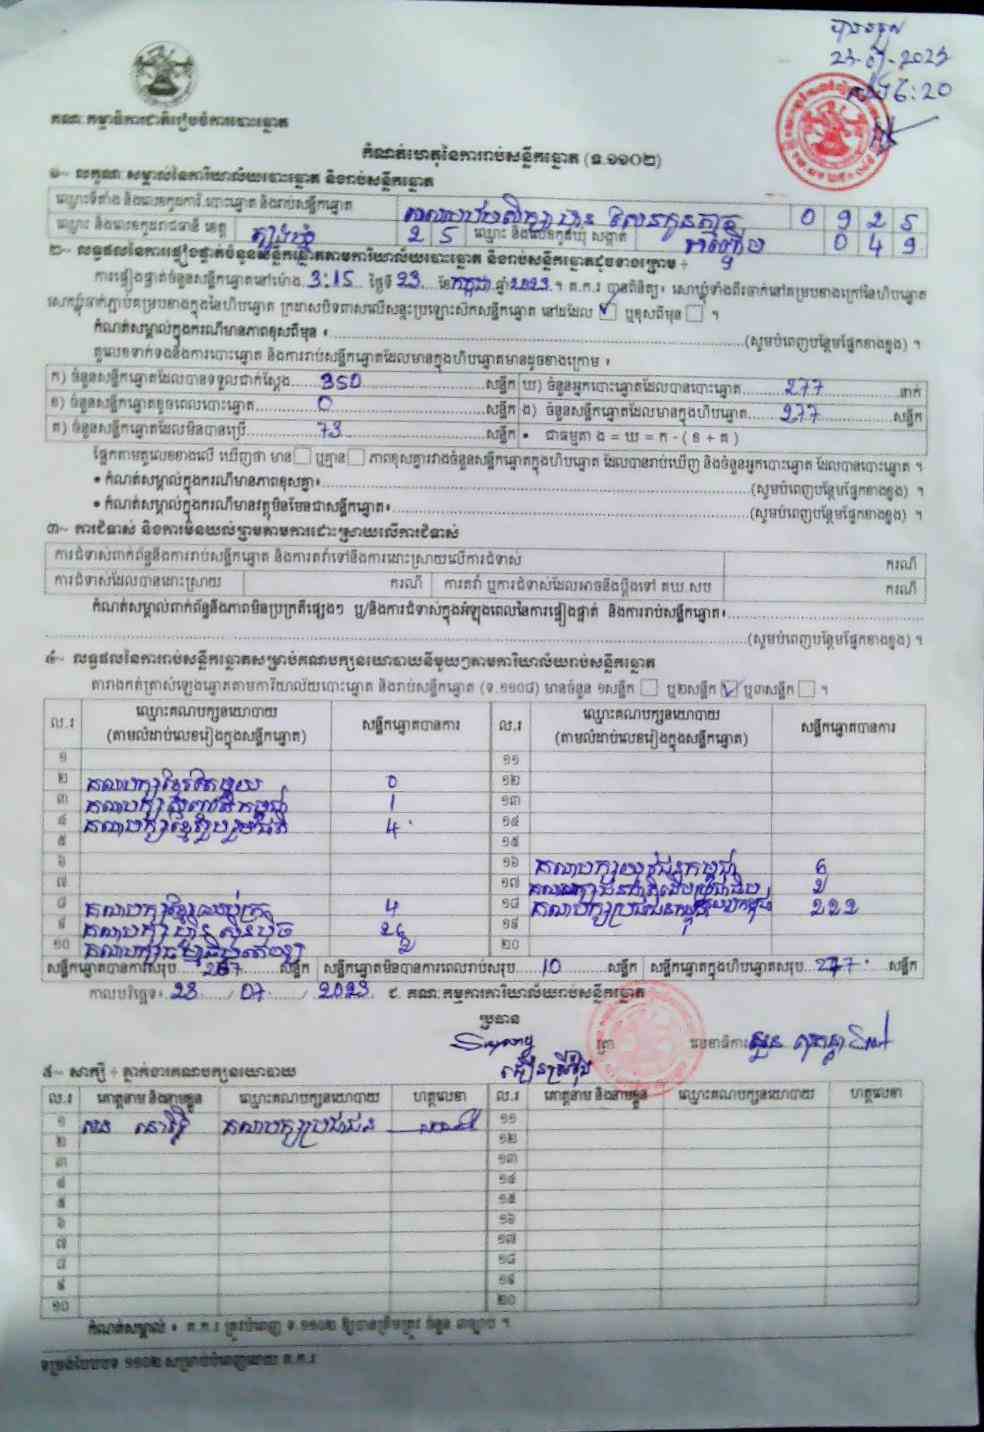 គណៈកម្មាធិការជាតិរៀបចំការបោះឆ្នោត
6:20
កំណត់ហេតុនៃការរាប់សន្លឹកឆ្នោត (ទ.១១០២)
១~ លក្ខណៈសម្គាល់នៃការិយាល័យបោះឆ្នោត និងរាប់សន្លឹកឆ្នោត
ឈ្មោះទីតាំង និងលេខកូដការិ.បោះឆ្នោត និងរាប់សន្លឹកឆ្នោត 0 9 2 5
ឈ្មោះ និងលេខកូដរាជធានី ខេត្ត ត្បូងឃ្មុំ 2 5 ឈ្មោះ និងលេខកូដឃុំ សង្កាត់ 0 4 9
២~ លទ្ធផលនៃការផ្ទៀងផ្ទាត់ចំនួនសន្លឹកឆ្នោតតាមការិយាល័យបោះឆ្នោត និងរាប់សន្លឹកឆ្នោតដូចខាងក្រោម ៖
ការផ្ទៀងផ្ទាត់ចំនួនសន្លឹកឆ្នោតនៅម៉ោង 3:15 ថ្ងៃទី 23 ខែ កក្កដា ឆ្នាំ 2023 ។ គ.ក.រ បានពិនិត្យ៖ សោឃ្លុំទាំងពីរចាក់នៅគម្របខាងក្រៅនៃហិបឆ្នោត
សោឃ្លុំចាក់ភ្ជាប់គម្របខាងក្នុងនៃហិបឆ្នោត ក្រដាសបិទពាសលើសន្ទះប្រឡោះសឹកសន្លឹកឆ្នោត នៅដដែល ☑ ឬខុសពីមុន ☐ ។
កំណត់សម្គាល់ក្នុងករណីមានភាពខុសពីមុន ៖ (សូមបំពេញបន្ថែមផ្នែកខាងខ្នង) ។
តួលេខទាក់ទងនឹងការបោះឆ្នោត និងការរាប់សន្លឹកឆ្នោតដែលមានក្នុងហិបឆ្នោតមានដូចខាងក្រោម ៖
ក) ចំនួនសន្លឹកឆ្នោតដែលបានទទួលជាក់ស្តែង 350 សន្លឹក ឃ) ចំនួនអ្នកបោះឆ្នោតដែលបានបោះឆ្នោត 277 នាក់
ខ) ចំនួនសន្លឹកឆ្នោតខូចពេលបោះឆ្នោត 0 សន្លឹក ង) ចំនួនសន្លឹកឆ្នោតដែលមានក្នុងហិបឆ្នោត 277 សន្លឹក
គ) ចំនួនសន្លឹកឆ្នោតដែលមិនបានប្រើ 73 សន្លឹក • ជាធម្មតា ង = ឃ = ក - ( ខ + គ )
ផ្អែកតាមតួលេខខាងលើ ឃើញថា មាន ☐ ឬគ្មាន ☐ ភាពខុសគ្នារវាងចំនួនសន្លឹកឆ្នោតក្នុងហិបឆ្នោត ដែលបានរាប់ឃើញ និងចំនួនអ្នកបោះឆ្នោត ដែលបានបោះឆ្នោត ។
• កំណត់សម្គាល់ក្នុងករណីមានភាពខុសគ្នា៖ (សូមបំពេញបន្ថែមផ្នែកខាងខ្នង) ។
• កំណត់សម្គាល់ក្នុងករណីមានវត្ថុមិនមែនជាសន្លឹកឆ្នោត៖ (សូមបំពេញបន្ថែមផ្នែកខាងខ្នង) ។
៣~ ការជំទាស់ និងការមិនយល់ព្រមតាមការដោះស្រាយលើការជំទាស់
ការជំទាស់ពាក់ព័ន្ធនឹងការរាប់សន្លឹកឆ្នោត និងការតវ៉ាទៅនឹងការដោះស្រាយលើការជំទាស់ ករណី
ការជំទាស់ដែលបានដោះស្រាយ ករណី ការតវ៉ា ឬការជំទាស់ដែលអាចនឹងប្តឹងទៅ គឃ.សប ករណី
កំណត់សម្គាល់ពាក់ព័ន្ធនឹងភាពមិនប្រក្រតីផ្សេងៗ ឬ/និងការជំទាស់ក្នុងអំឡុងពេលនៃការផ្ទៀងផ្ទាត់ និងការរាប់សន្លឹកឆ្នោត៖
(សូមបំពេញបន្ថែមផ្នែកខាងខ្នង) ។
៤~ លទ្ធផលនៃការរាប់សន្លឹកឆ្នោតសម្រាប់គណបក្សនយោបាយនីមួយៗតាមការិយាល័យរាប់សន្លឹកឆ្នោត
តារាងកត់ត្រាសំឡេងឆ្នោតតាមការិយាល័យបោះឆ្នោត និងរាប់សន្លឹកឆ្នោត (ទ.១១០៨) មានចំនួន ១សន្លឹក ☐ ឬ២សន្លឹក ☑ ឬ៣សន្លឹក ☐ ។
ល.រ ឈ្មោះគណបក្សនយោបាយ (តាមលំដាប់លេខរៀងក្នុងសន្លឹកឆ្នោត) សន្លឹកឆ្នោតបានការ ល.រ ឈ្មោះគណបក្សនយោបាយ (តាមលំដាប់លេខរៀងក្នុងសន្លឹកឆ្នោត) សន្លឹកឆ្នោតបានការ
១ ១១
២ គណបក្សខ្មែរតែមួយ 0 ១២
៣ 1 ១៣
៤ គណបក្សខ្មែររួបរួមជាតិ 4 ១៤
៥ ១៥
៦ ១៦ គណបក្សយុវជនកម្ពុជា 6
៧ ១៧
៨ 4 ១៨ គណបក្សប្រជាជនកម្ពុជា 222
៩ ១៩
១០ ២០
សន្លឹកឆ្នោតបានការសរុប 267 សន្លឹក សន្លឹកឆ្នោតមិនបានការពេលរាប់សរុប 10 សន្លឹក សន្លឹកឆ្នោតក្នុងហិបឆ្នោតសរុប 277 សន្លឹក
កាលបរិច្ឆេទ៖ 23 / 07 / 2023 ជ. គណៈកម្មការការិយាល័យរាប់សន្លឹកឆ្នោត
ប្រធាន
ត្រា លេខាធិការ
៥~ សាក្សី ៖ ភ្នាក់ងារគណបក្សនយោបាយ
ល.រ គោត្តនាម និងនាមខ្លួន ឈ្មោះគណបក្សនយោបាយ ហត្ថលេខា ល.រ គោត្តនាម និងនាមខ្លួន ឈ្មោះគណបក្សនយោបាយ ហត្ថលេខា
១ គណបក្សប្រជាជន ១១
២ ១២
៣ ១៣
៤ ១៤
៥ ១៥
៦ ១៦
៧ ១៧
៨ ១៨
៩ ១៩
១០ ២០
កំណត់សម្គាល់ ៖ គ.ក.រ ត្រូវបំពេញ ទ.១១០២ ឱ្យបានត្រឹមត្រូវ ចំនួន ៣ច្បាប់ ។
ទម្រង់បែបបទ ១១០២ សម្រាប់បំពេញដោយ គ.ក.រ